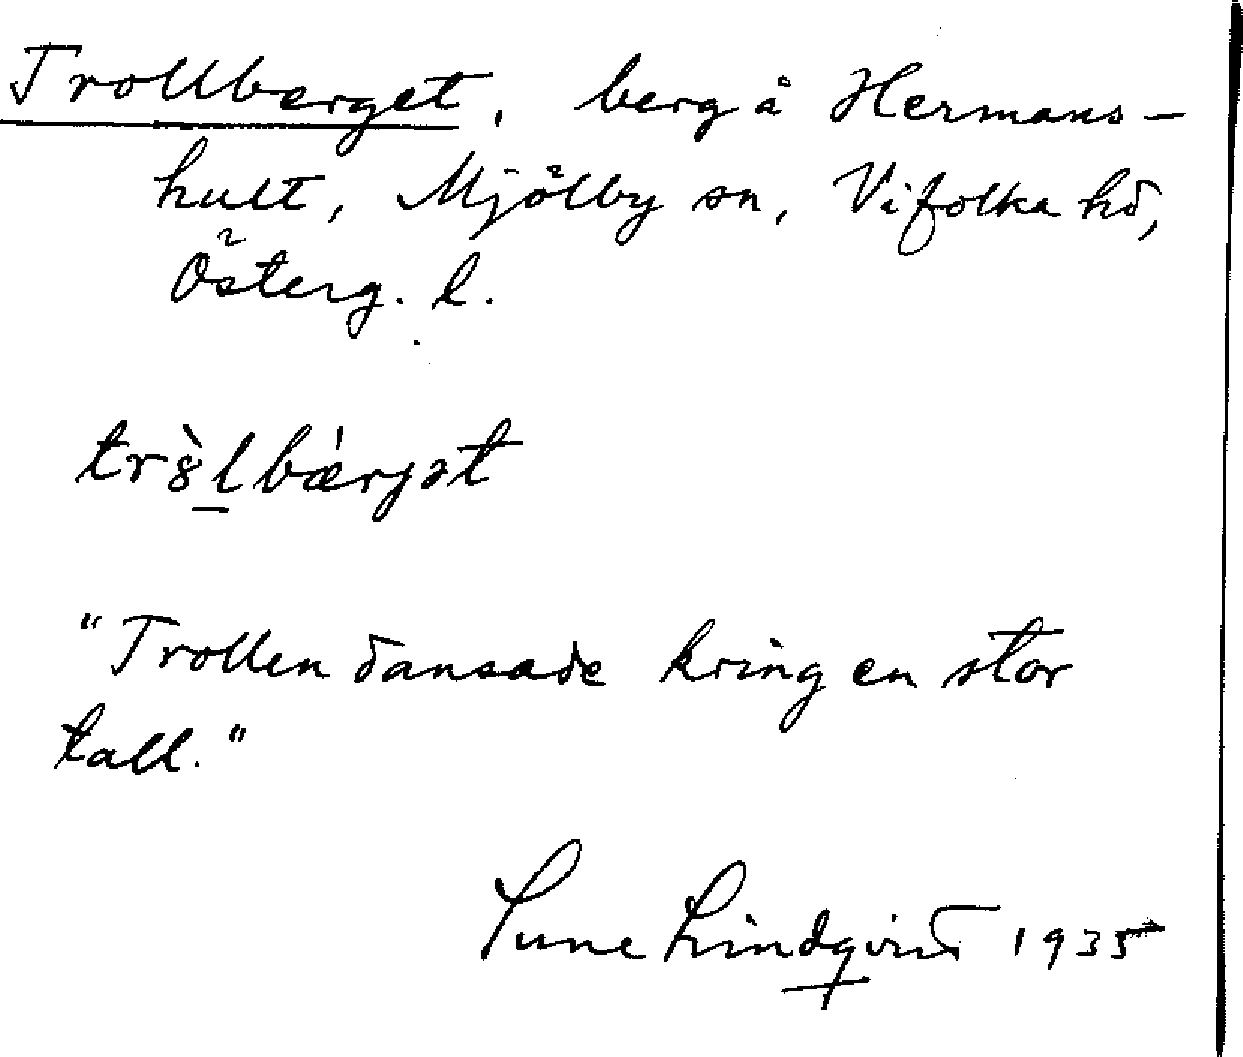 Trollberget, berg å Hermans-
hult, Mjölby sn, Vifolka hd,
Österg. l.
trȣ̀lbærjət
"Trollen dansade kring en stor
tall."
Sune Lindqvist 1935